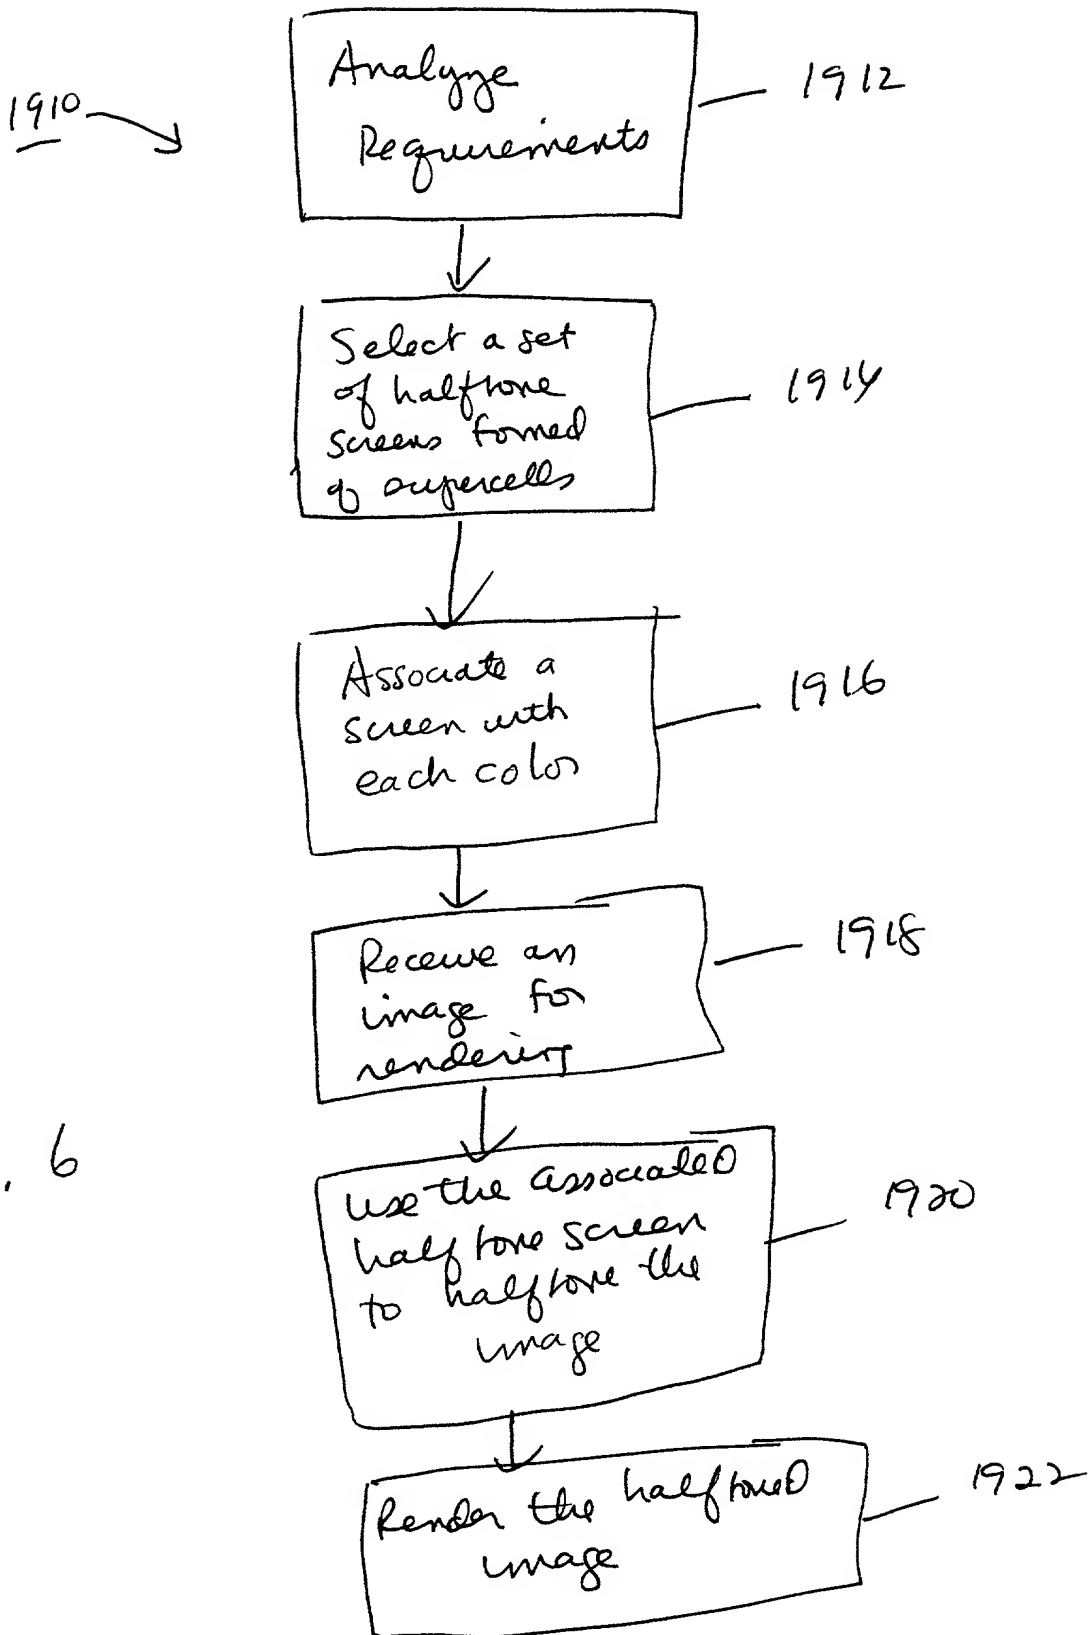 1910
Analyze
Requirements
1912
Select a set
of halftone
screens formed
of supercells
1914
Associate a
screen with
each color
1916
Receive an
image for
rendering
1918
. 6
Use the associated
halftone screen
to halftone the
image
1920
Render the halftoned
image
1922